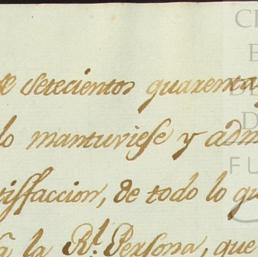 de setecientos quarenta y
lo mantuviese y adm
tisfaccion, de todo lo qu
la Rl. Persona, que